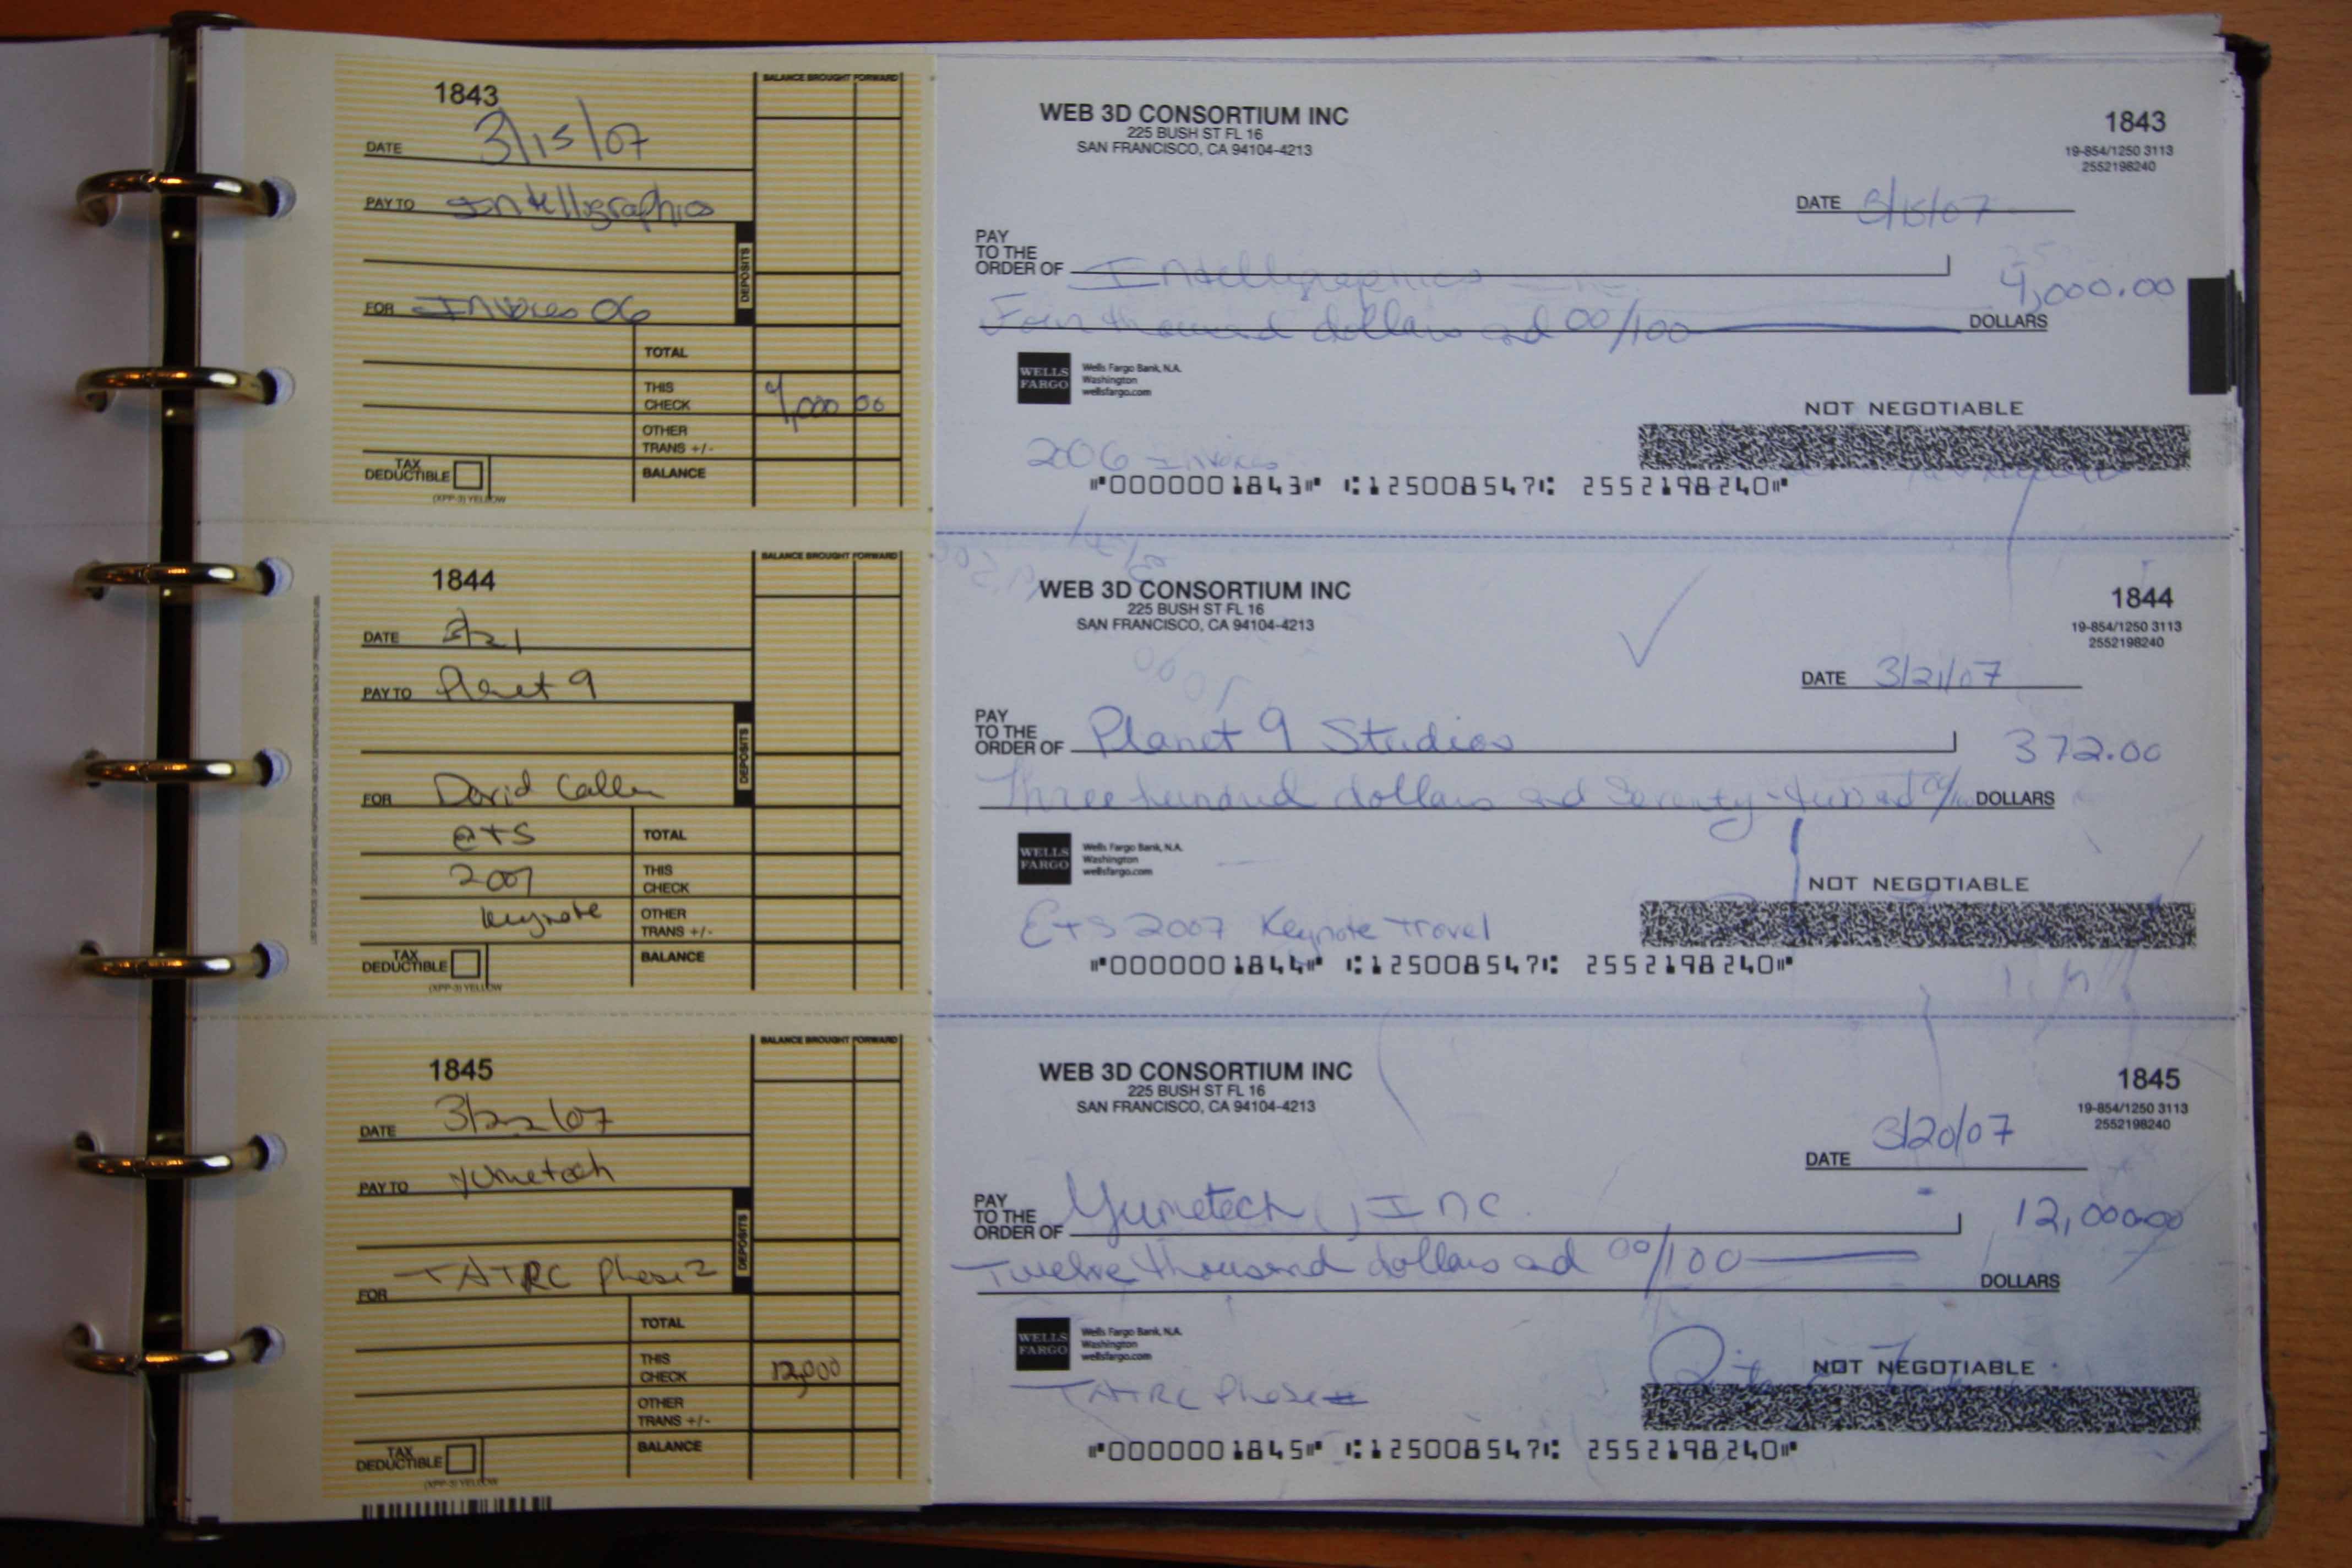 1843
BALANCE BROUGHT FORWARD
DATE 3/15/07
PAY TO Intellographics
DEPOSITS
FOR Invoices 06
TOTAL
THIS CHECK 4,000 00
OTHER TRANS +/-
TAX DEDUCTIBLE
BALANCE
(XPP-3) YELLOW
WEB 3D CONSORTIUM INC
225 BUSH ST FL 16
SAN FRANCISCO, CA 94104-4213
1843
19-854/1250 3113
2552198240
DATE 3/15/07
PAY
TO THE
ORDER OF Intelligraphics Inc
4,000.00
Four thousand dollars and 00/100 DOLLARS
WELLS FARGO
Wells Fargo Bank, N.A.
Washington
wellsfargo.com
NOT NEGOTIABLE
2006 Invoices
⑈0000001843⑈ ⑆125008547⑆ 2552198240⑈
1844
BALANCE BROUGHT FORWARD
DATE 3/21
PAY TO Planet 9
DEPOSITS
FOR David Calle
E+S
2007
Keynote
TOTAL
THIS CHECK
OTHER TRANS +/-
TAX DEDUCTIBLE
BALANCE
(XPP-3) YELLOW
WEB 3D CONSORTIUM INC
225 BUSH ST FL 16
SAN FRANCISCO, CA 94104-4213
1844
19-854/1250 3113
2552198240
DATE 3/21/07
PAY
TO THE
ORDER OF Planet 9 Studios
372.00
Three hundred dollars and Seventy-two and 00/100 DOLLARS
WELLS FARGO
Wells Fargo Bank, N.A.
Washington
wellsfargo.com
NOT NEGOTIABLE
E+S 2007 Keynote Travel
⑈0000001844⑈ ⑆125008547⑆ 2552198240⑈
1845
BALANCE BROUGHT FORWARD
DATE 3/22/07
PAY TO Yumetech
DEPOSITS
FOR TATRC Phase 2
TOTAL
THIS CHECK 12,000
OTHER TRANS +/-
TAX DEDUCTIBLE
BALANCE
(XPP-3) YELLOW
WEB 3D CONSORTIUM INC
225 BUSH ST FL 16
SAN FRANCISCO, CA 94104-4213
1845
19-854/1250 3113
2552198240
DATE 3/20/07
PAY
TO THE
ORDER OF Yumetech, Inc.
12,000.00
Twelve thousand dollars and 00/100 DOLLARS
WELLS FARGO
Wells Fargo Bank, N.A.
Washington
wellsfargo.com
NOT NEGOTIABLE
TATRC Phase
⑈0000001845⑈ ⑆125008547⑆ 2552198240⑈